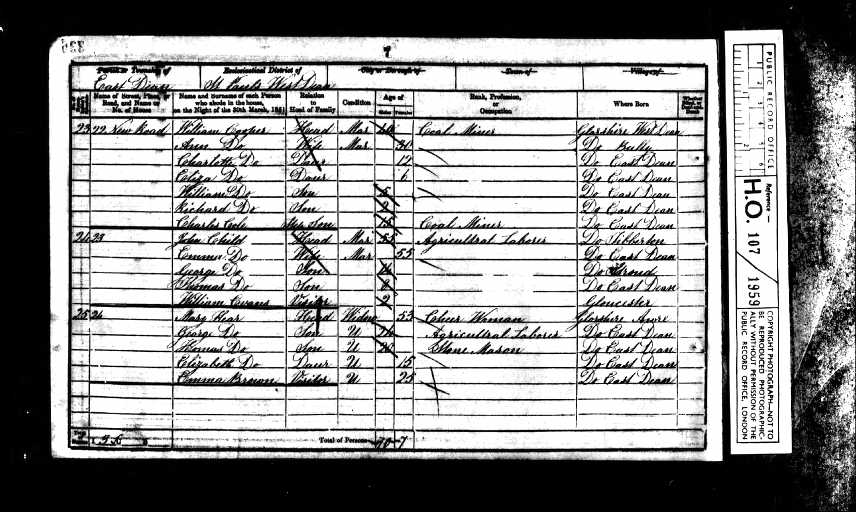 Parish or Township of Ecclesiastical District of City or Borough of Town of Village of
East Dean St Pauls West Dean
Name of Street, Place, or Road, and Name or No. of House Name and Surname of each Person who abode in the house, on the Night of the 30th March, 1851 Relation to Head of Family Condition Age of Males Females Rank, Profession, or Occupation Where Born
23 22 New Road William Cooper Head Mar Coal Miner Glosshire West Dean
Ann Do Wife Mar Do
Charlotte Do Daur 12 Do East Dean
Eliza Do Daur 6 Do East Dean
William Do Son 5 Do East Dean
Richard Do Son 2 Do East Dean
Charles Cole Son 15 Coal Miner Do East Dean
24 23 John Child Head Mar 53 Agricultral Laborer Do Tibberton
Emma Do Wife Mar 55 Do East Dean
George Do Son Do Stroud
Thomas Do Son 8 Do East Dean
William Evans Visitor 2 Gloucester
25 24 Mary Hear Head Widow 53 Woman Glosshire Awre
George Do Son U 24 Agricultral Laborer Do East Dean
Thomas Do Son U 20 Stone Mason Do East Dean
Elizabeth Do Daur U 15 Do East Dean
Emma Brown Visitor U 25 Do East Dean
Total of Persons 10 7
PUBLIC RECORD OFFICE
1 2 3 4 5 6
Reference :—
H.O. 107 / 1959
COPYRIGHT PHOTOGRAPH—NOT TO
BE REPRODUCED PHOTOGRAPHIC-
ALLY WITHOUT PERMISSION OF THE
PUBLIC RECORD OFFICE, LONDON